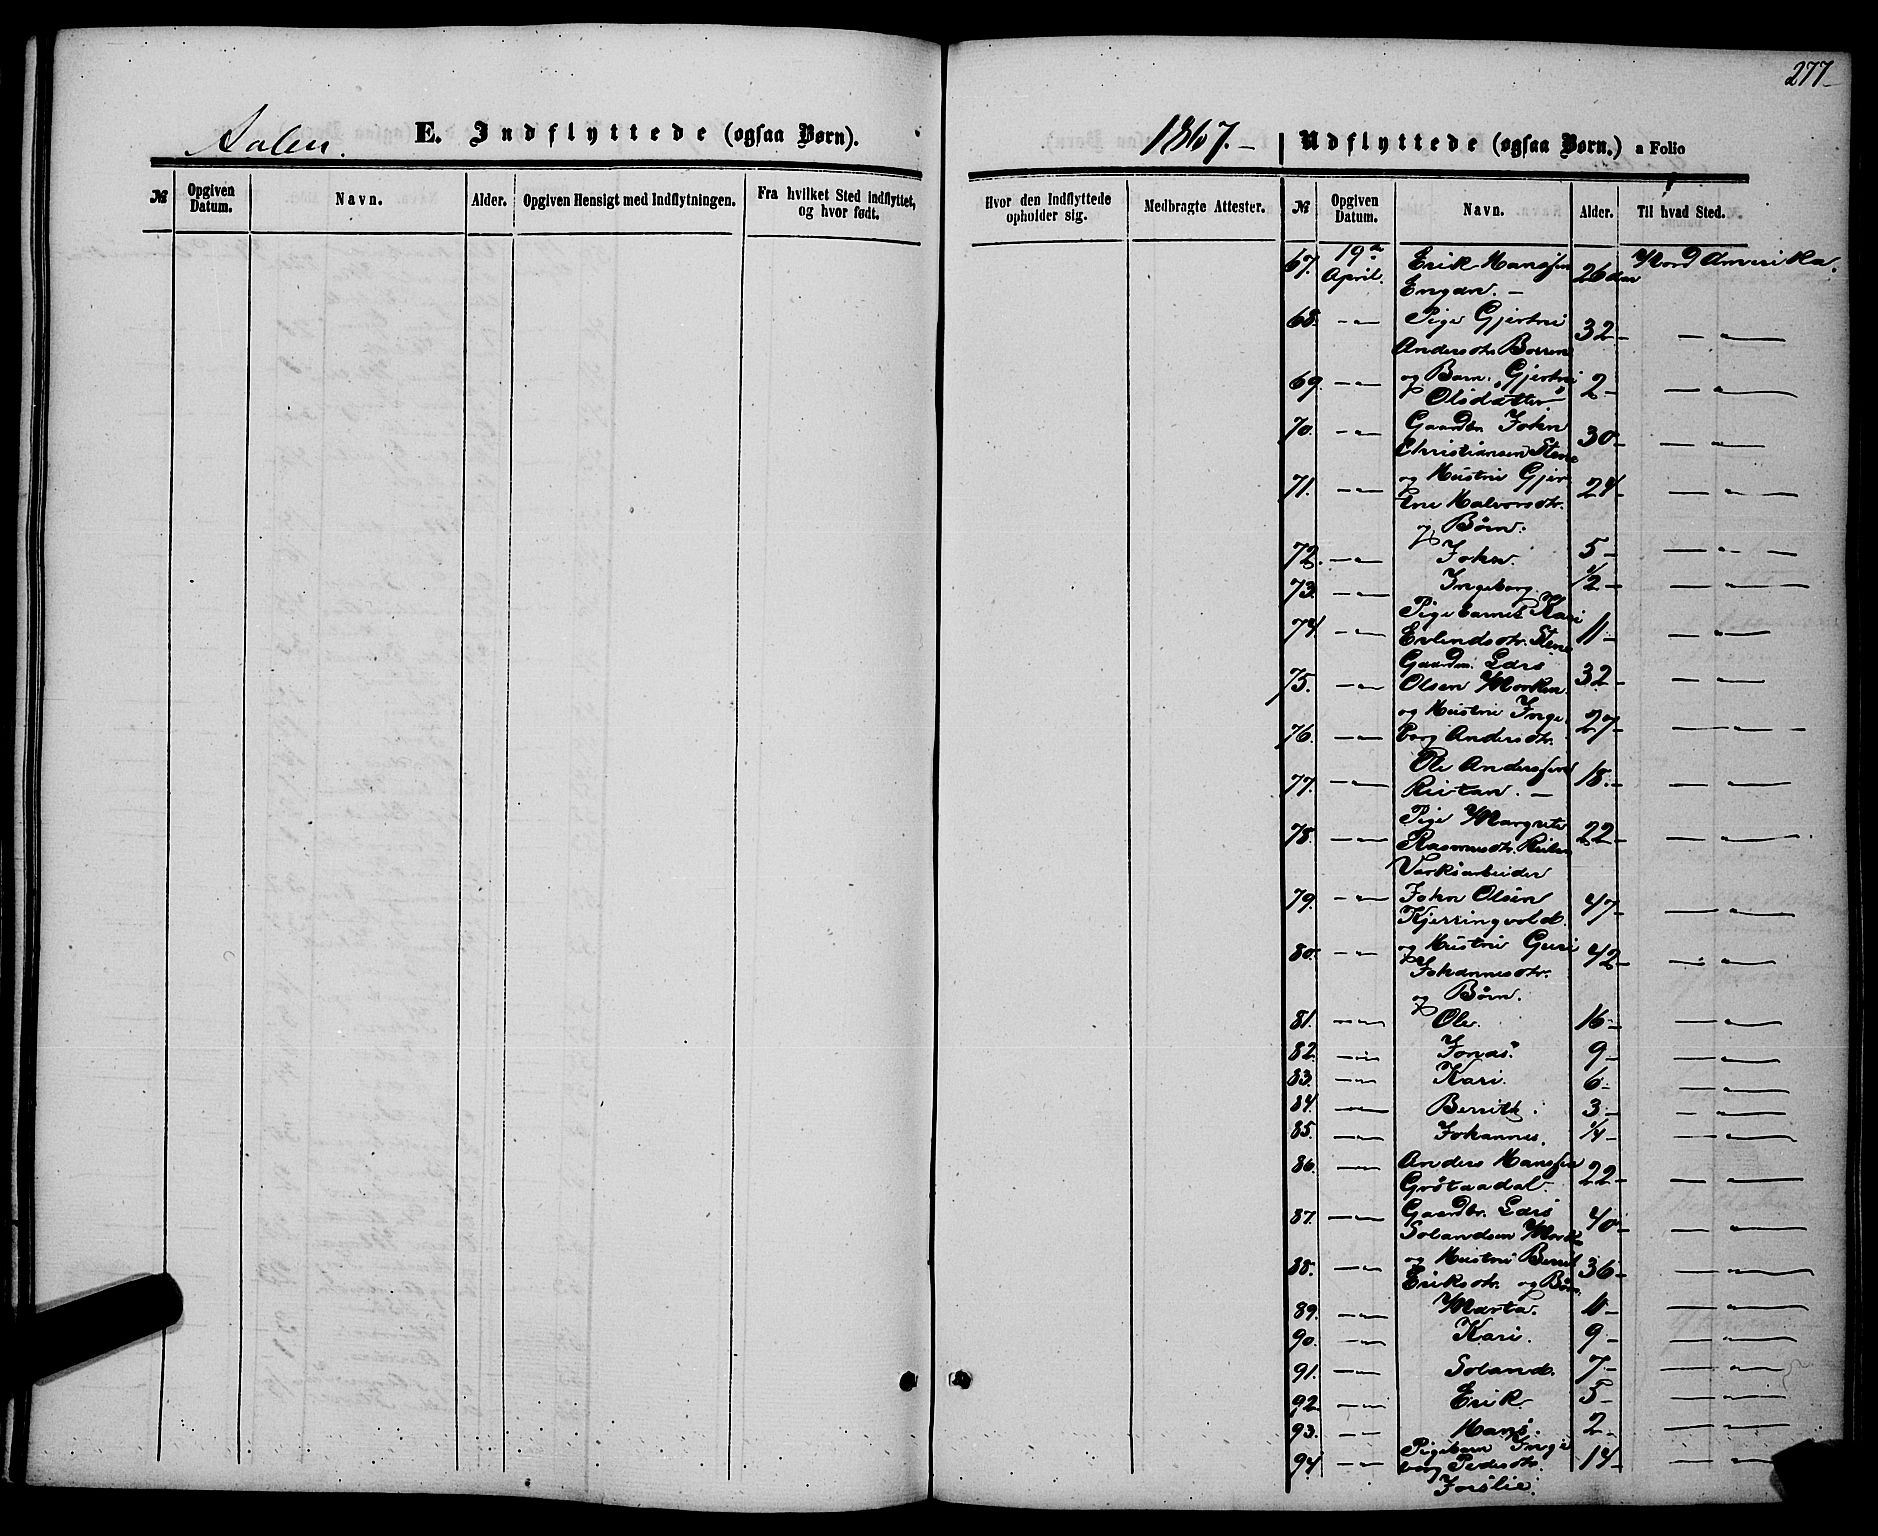 277
Aalen. E. Indflyttede (ogsaa Børn).
1867. Udflyttede (ogsaa Børn.) a Folio
№ Opgiven Datum. Navn. Alder. Opgiven Hensigt med Indflytningen. Fra hvilket Sted indflyttet, og hvor født.
Hvor den Indflyttede opholder sig. Medbragte Attester. № Opgiven Datum. Navn. Alder. Til hvad Sted.
67. 19de April. Erik Hansen Engan. — 26 Aar Nord Amerika.
68. — " — Pige Gjertru Andersdtr. Borren 32 — — " —
69. — " — og Barn. Gjertru Olsdatter 2 — — " —
70. — " — Gaardbr. John Christiansen Stene 30 — — " —
71. — " — og Hustru Gjertrue Halvorsdtr. 24 — — " —
og Børn.
72. — " — John. 5 — — " —
73. — " — Ingeborg. 1/2 — — " —
74 — " — Pigebarnet Kari Erlendsdtr. Stene 11 — — " —
75. — " — Gaardm. Lars Olsen Morken. 32 — — " —
76. — " — og Hustru Ingeborg Andersdtr. 27 — — " —
77. — " — Ole Andersen Reitan. — 18. — — " —
78. — " — Pige Margrete Rasmusdtr. 22 — — " —
Værksarbeider
79. — " — John Olsen Kjerringvold. 47 — — " —
80. — " — og Hustru Guri Johannesdtr. 42 — — " —
og Børn.
81. — " — Ole. 16 — — " —
82. — " — Jonas. 9 — — " —
83. — " — Kari. 6 — — " —
84. — " — Berrith. 3 — — " —
85. — " — Johannes. 1/4 — — " —
86. — " — Anders Hansen Grøtaadal. 22 — — " —
87. — " — Gaardbr. Lars Solandsen 40 — — " —
88. — " — og Hustru Berrit Eriksdtr. og Børn. 36 — — " —
89. — " — Marta. 11 — — " —
90. — " — Kari. 9 — — " —
91. — " — Soland. 7 — — " —
92 — " — Erik. 5 — — " —
93. — " — Hans. 2 — — " —
94 — " — Pigebarn Ingeborg Pedersdtr. Forslie. 14 — — " —